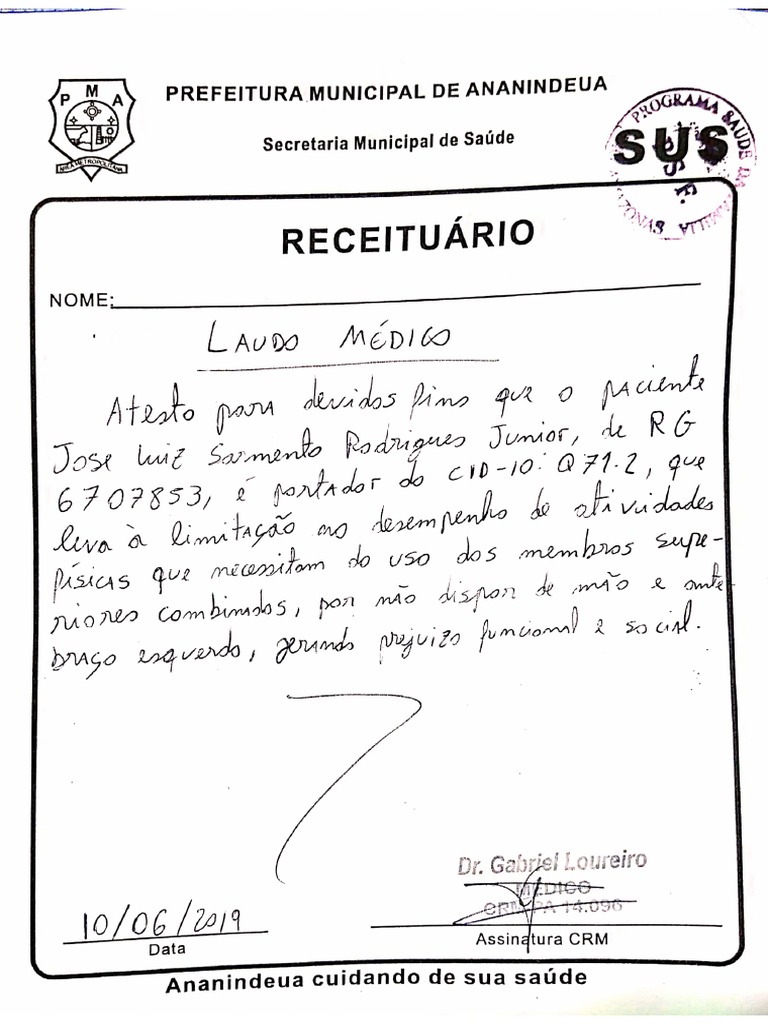 P M A
ÁREA METROPOLITANA
PREFEITURA MUNICIPAL DE ANANINDEUA
Secretaria Municipal de Saúde
PROGRAMA SAÚDE DA FAMÍLIA
SUS
AMAZONAS
RECEITUÁRIO
NOME:
LAUDO MÉDICO
Atesto para devidos fins que o paciente
Jose Luiz Sarmento Rodrigues Junior, de RG
6707853, é portador do CID-10: Q71.2, que
leva à limitação no desempenho de atividades
físicas que necessitam do uso dos membros supe-
riores combinados, por não dispor de mão e ante-
braço esquerdo, gerando prejuízo funcional e social.
Dr. Gabriel Loureiro
MÉDICO
CRM-PA 14.096
10/06/2019
Data
Assinatura CRM
Ananindeua cuidando de sua saúde